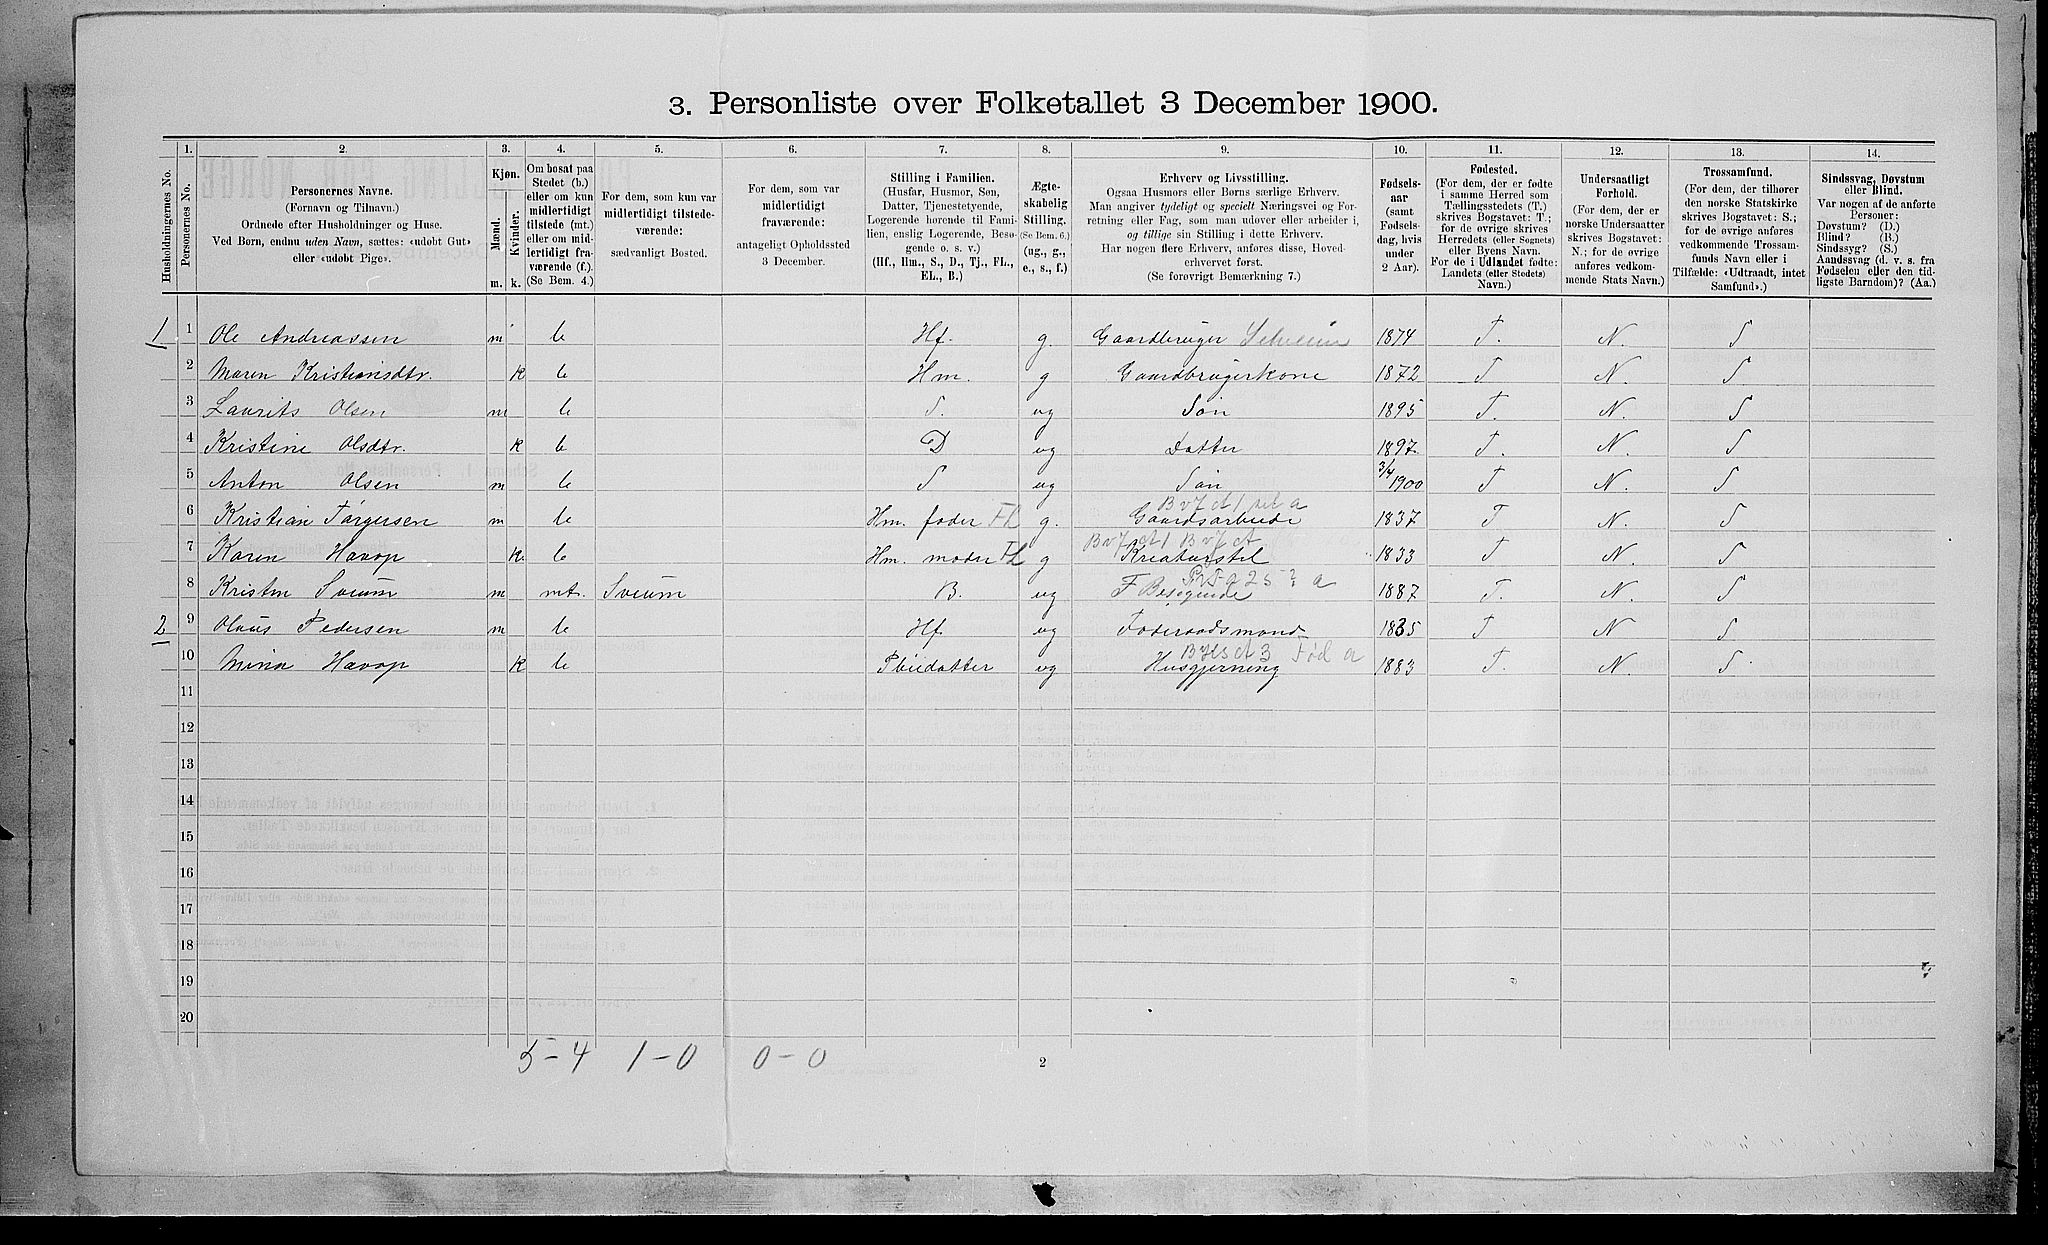 3. Personliste over Folketallet 3 December 1900.
1. 2. 3. 4. 5. 6. 7. 8. 9. 10. 11. 12. 13. 14.
Husholdningernes No.
Personernes No.
Personernes Navne.
(Fornavn og Tilnavn.)
Ordnede efter Husholdninger og Huse.
Ved Børn, endnu uden Navn, sættes: «udøbt Gut»
eller «udøbt Pige».
Kjøn.
Mænd.
Kvinder.
m. k.
Om bosat paa
Stedet (b.)
eller om kun
midlertidigt
tilstede (mt.)
eller om mid-
lertidigt fra-
værende (f.)
(Se Bem. 4.)
For dem, som kun var
midlertidigt tilstede-
værende:
sædvanligt Bosted.
For dem, som var
midlertidigt
fraværende:
antageligt Opholdssted
3 December.
Stilling i Familien.
(Husfar, Husmor, Søn,
Datter, Tjenestetyende,
Logerende hørende til Fami-
lien, enslig Logerende, Besø-
gende o. s. v.)
(Hf., Hm., S., D., Tj., FL.,
EL., B.)
Ægte-
skabelig
Stilling.
(Se Bem. 6.)
(ug., g.,
e., s., f.)
Erhverv og Livsstilling.
Ogsaa Husmors eller Børns særlige Erhverv.
Man angiver tydeligt og specielt Næringsvei og For-
retning eller Fag, som man udøver eller arbeider i,
og tillige sin Stilling i dette Erhverv.
Har nogen flere Erhverv, anføres disse, Hoved-
erhvervet først.
(Se forøvrigt Bemærkning 7.)
Fødsels-
aar
(samt
Fødsels-
dag, hvis
under
2 Aar).
Fødested.
(For dem, der er fødte
i samme Herred som
Tællingsstedets (T.)
skrives Bogstavet: T.;
for de øvrige skrives
Herredets (eller Sognets)
eller Byens Navn.
For de i Udlandet fødte:
Landets (eller Stedets)
Navn.)
Undersaatligt
Forhold.
(For dem, der er
norske Undersaatter
skrives Bogstavet:
N.; for de øvrige
anføres vedkom-
mende Stats Navn.)
Trossamfund.
(For dem, der tilhører
den norske Statskirke
skrives Bogstavet: S.;
for de øvrige anføres
vedkommende Trossam-
funds Navn eller i
Tilfælde: «Udtraadt, intet
Samfund».)
Sindssvag, Døvstum
eller Blind.
Var nogen af de anførte
Personer:
Døvstum? (D.)
Blind? (B.)
Sindssyg? (S.)
Aandssvag (d. v. s. fra
Fødselen eller den tid-
ligste Barndom)? (Aa.)
1 1 Ole Andreassen m b Hf. g. Gaardbruger Selveier 1874 T. N. S
2 Maren Kristiansdtr. k b Hm. g Gaardbrugerkone 1872 T N. S
3 Laurits Olsen m b S. ug Søn 1895 T. N. S
4 Kristine Olsdtr. k b D ug Datter 1897 T. N. S
5 Anton Olsen m b S ug Søn 3/4 1900 T N. S
6 Kristian Torgersen m b Hm. fader FL g. Gaardsarbeide 1837 T N. S
7 Karen Havop k. b Hm. moder FL g Kreaturstel 1833 T N. S
8 Kristen Sveum m mt. Sveum B. ug F Besøgende 1887 T. N. S
2 9 Olaus Pedersen m b Hf. ug Føderaadsmand 1835 T N S
10 Mina Havop k b Pleiedatter ug Husgjerning 1883 T. N. S.
11
12
13
14
15
16
17
18
19
20
5-4 1-0 0-0
2